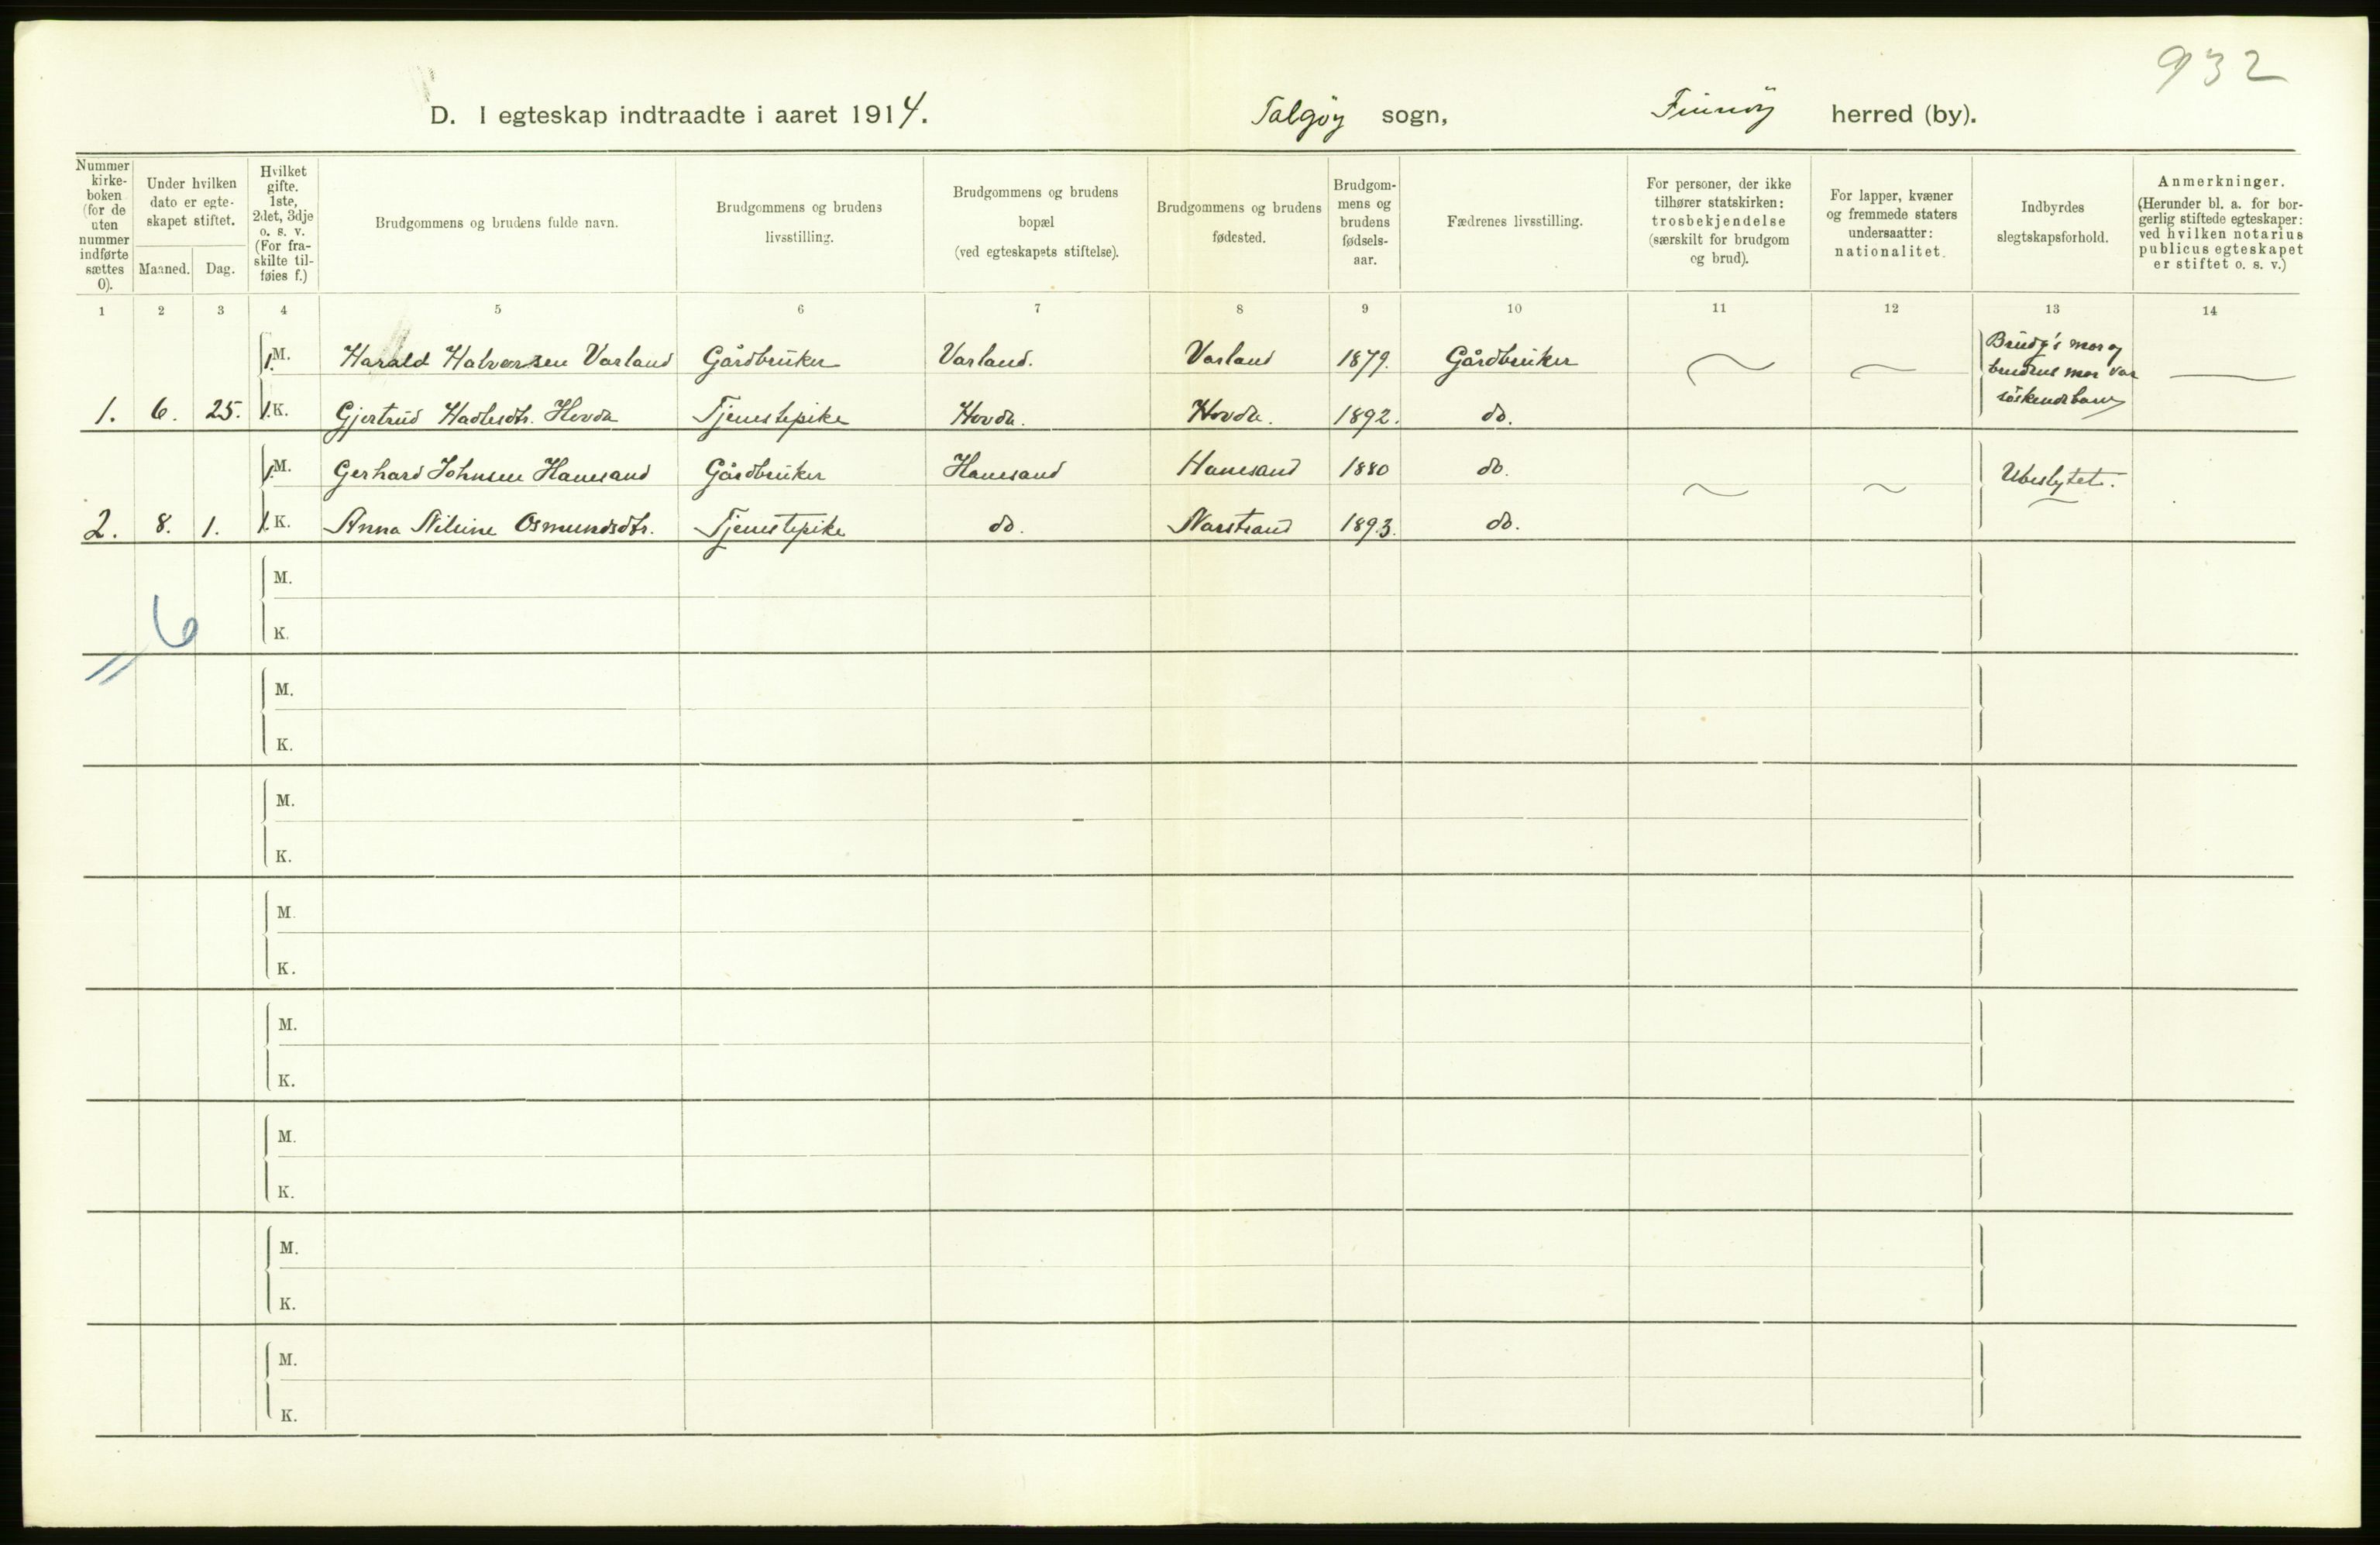 932
D. I egteskap indtraadte i aaret 1914. Talgøy sogn, Finnöy herred (by).
Nummer kirke- boken (for de uten nummer indførte sættes 0).
Under hvilken dato er egte- skapet stiftet.
Maaned. Dag.
Hvilket gifte. 1ste, 2det, 3dje o. s. v. (For fra- skilte til- føies f.)
Brudgommens og brudens fulde navn.
Brudgommens og brudens livsstilling.
Brudgommens og brudens bopæl (ved egteskapets stiftelse).
Brudgommens og brudens fødested.
Brudgom- mens og brudens fødsels- aar.
Fædrenes livsstilling.
For personer, der ikke tilhører statskirken: trosbekjendelse (særskilt for brudgom og brud).
For lapper, kvæner og fremmede staters undersaatter: nationalitet.
Indbyrdes slegtskapsforhold.
Anmerkninger. (Herunder bl. a. for bor- gerlig stiftede egteskaper: ved hvilken notarius publicus egteskapet er stiftet o. s. v.)
1 2 3 4 5 6 7 8 9 10 11 12 13 14
1. M. Harald Halvorsen Varland Gårdbruker Varland. Varland 1879. Gårdbruker Brudg's mor og brudens mor var söskendebarn
1. 6. 25. 1. K. Gjertrud Hadlesdtr. Hovda Tjenestepike Hovda. Hovda. 1892. do.
1. M. Gerhard Johnsen Hanesand Gårdbruker Hanesand Hanesand 1880 do. Ubeslgtet.
2. 8. 1. 1. K. Anna Nilsine Osmundsdtr. Tjenestepike do. Narstrand 1893. do.
M.
6
K.
M.
K.
M.
K.
M.
K.
M.
K.
M.
K.
M.
K.
M.
K.